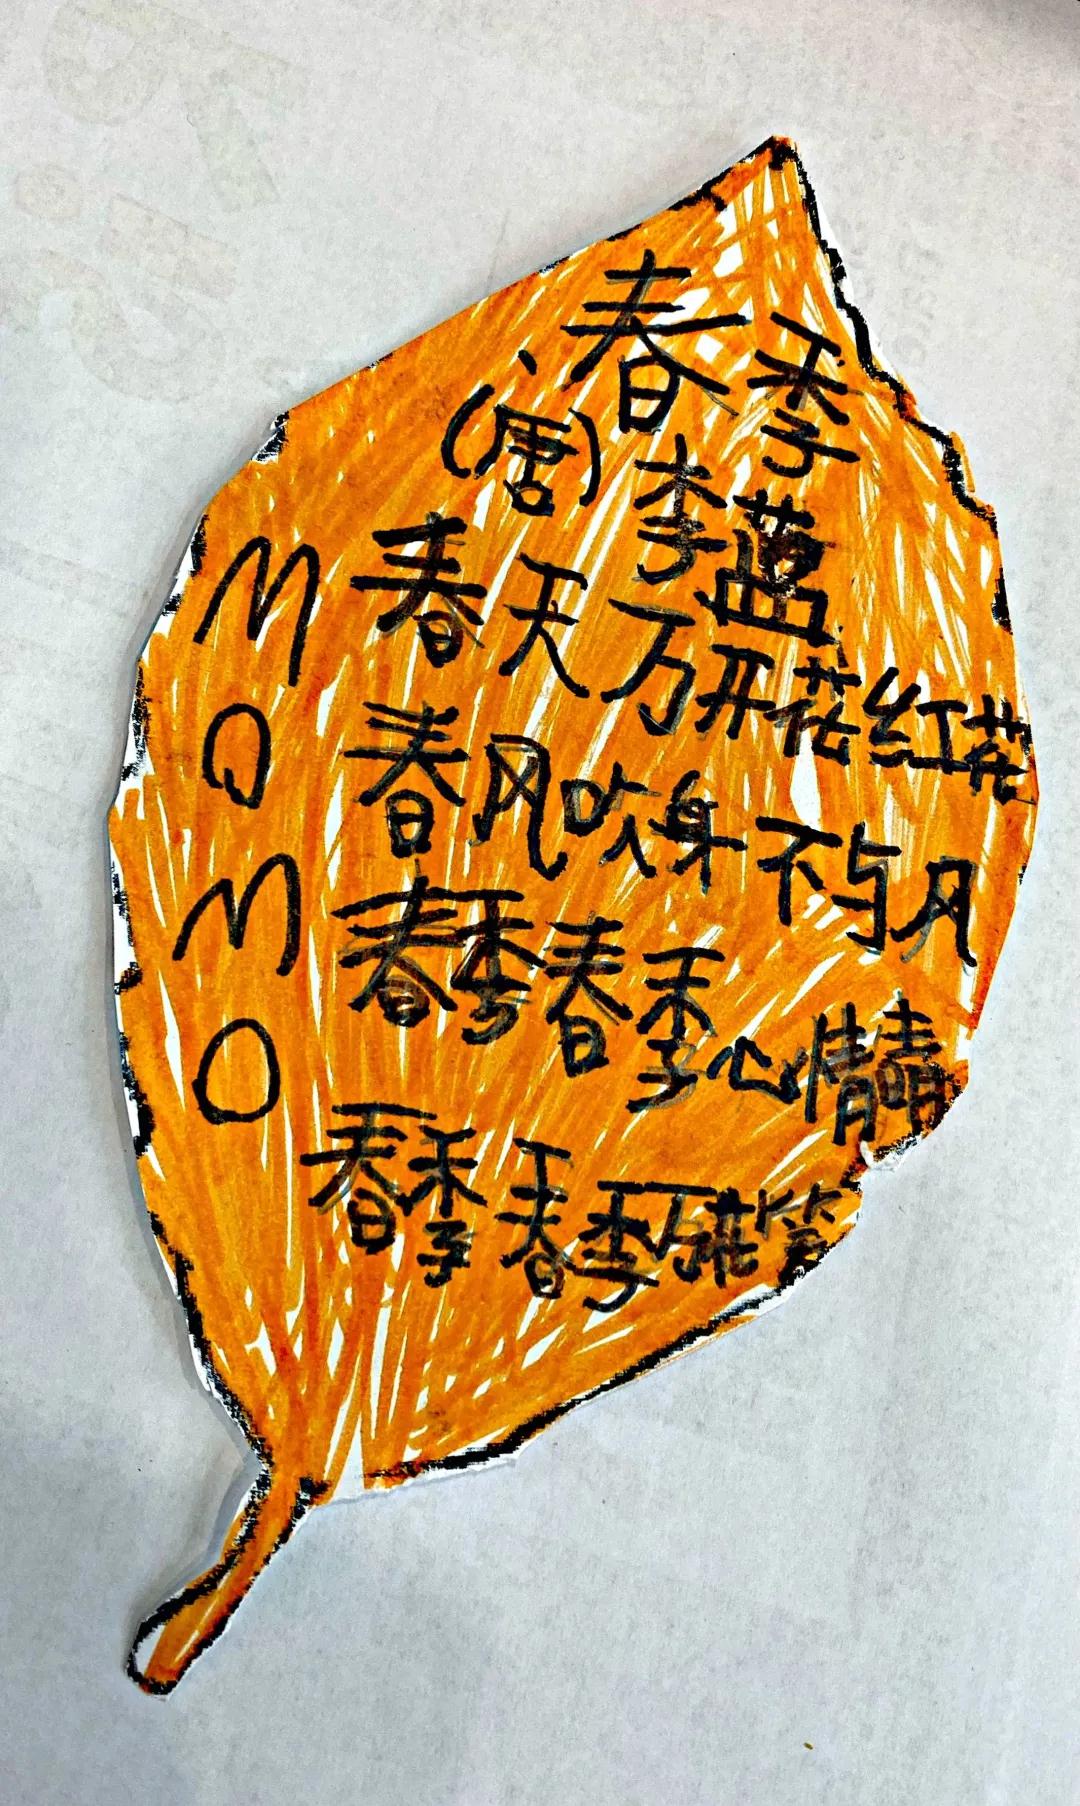 春季
(唐)李
春天万开花红花
春风吹身不与风
春季春季心情晴
春季春季万花笑
MOMO